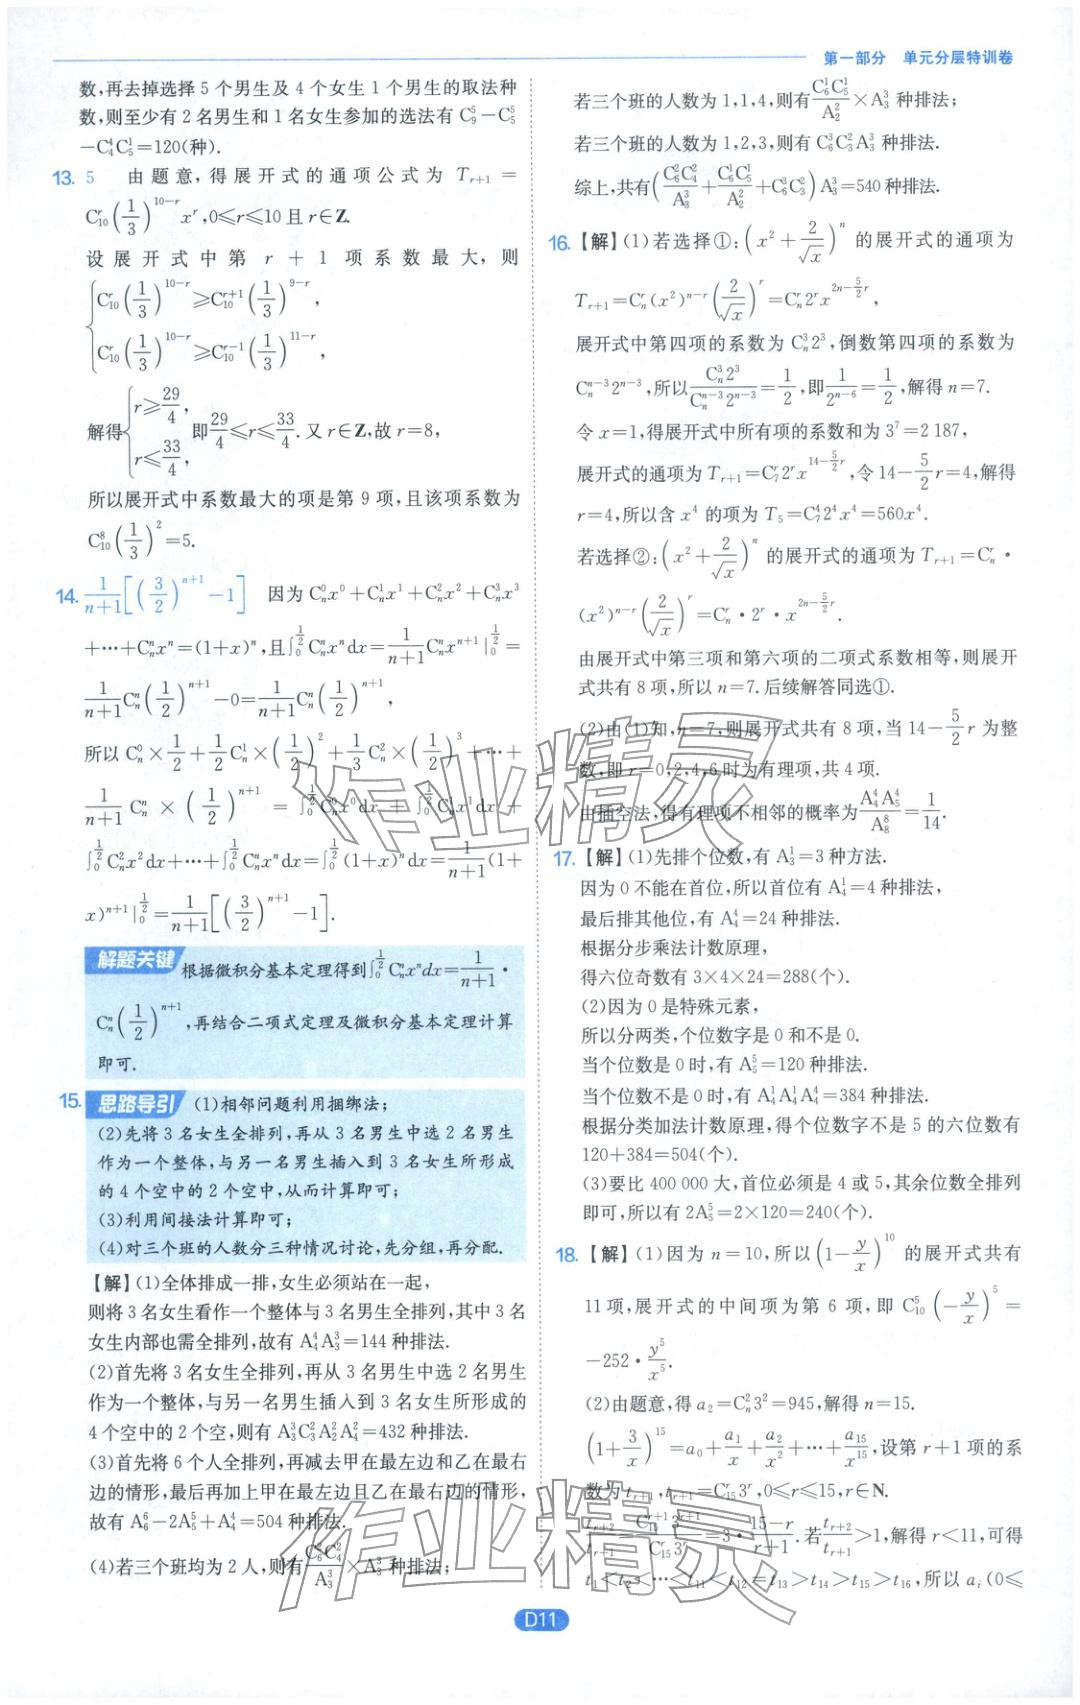 第一部分　单元分层特训卷
数,再去掉选择 5 个男生及 4 个女生 1 个男生的取法种
数,则至少有 2 名男生和 1 名女生参加的选法有 C₉⁵－C₅⁵
－C₄⁴C₅¹＝120(种).
13. 5　由题意,得展开式的通项公式为 Tᵣ₊₁＝
C₁₀ʳ(1/3)^(10－r) xʳ,0≤r≤10 且 r∈Z.
设展开式中第 r＋1 项系数最大,则
{C₁₀ʳ(1/3)^(10－r)≥C₁₀^(r+1)(1/3)^(9－r),
C₁₀ʳ(1/3)^(10－r)≥C₁₀^(r－1)(1/3)^(11－r),
解得{r≥29/4, r≤33/4, 即29/4≤r≤33/4.又 r∈Z,故 r＝8,
所以展开式中系数最大的项是第 9 项,且该项系数为
C₁₀⁸(1/3)²＝5.
14. 1/(n＋1)[(3/2)^(n+1)－1]　因为 Cₙ⁰x⁰＋Cₙ¹x¹＋Cₙ²x²＋Cₙ³x³
＋…＋Cₙⁿxⁿ＝(1＋x)ⁿ,且∫₀^(1/2) Cₙⁿxⁿdx＝1/(n＋1) Cₙⁿxⁿ⁺¹|₀^(1/2)＝
1/(n＋1) Cₙⁿ(1/2)^(n+1)－0＝1/(n＋1) Cₙⁿ(1/2)^(n+1),
所以 Cₙ⁰×1/2＋1/2 Cₙ¹×(1/2)²＋1/3 Cₙ²×(1/2)³＋…＋
1/(n＋1) Cₙⁿ×(1/2)^(n+1)＝∫₀^(1/2) Cₙ⁰x⁰dx＋∫₀^(1/2) Cₙ¹x¹dx＋
∫₀^(1/2) Cₙ²x²dx＋…＋∫₀^(1/2) Cₙⁿxⁿdx＝∫₀^(1/2)(1＋x)ⁿdx＝1/(n＋1)(1＋
x)ⁿ⁺¹|₀^(1/2)＝1/(n＋1)[(3/2)^(n+1)－1].
解题关键　根据微积分基本定理得到∫₀^(1/2) Cₙⁿxⁿdx＝1/(n＋1)·
Cₙⁿ(1/2)^(n+1),再结合二项式定理及微积分基本定理计算
即可.
15. 思路导引　(1)相邻问题利用捆绑法;
(2)先将 3 名女生全排列,再从 3 名男生中选 2 名男生
作为一个整体,与另一名男生插入到 3 名女生所形成
的 4 个空中的 2 个空中,从而计算即可;
(3)利用间接法计算即可;
(4)对三个班的人数分三种情况讨论,先分组,再分配.
【解】(1)全体排成一排,女生必须站在一起,
则将 3 名女生看作一个整体与 3 名男生全排列,其中 3 名
女生内部也需全排列,故有 A₄⁴A₃³＝144 种排法.
(2)首先将 3 名女生全排列,再从 3 名男生中选 2 名男生
作为一个整体,与另一名男生插入到 3 名女生所形成的
4 个空中的 2 个空,则有 A₃³C₃²A₂²A₄²＝432 种排法.
(3)首先将 6 个人全排列,再减去甲在最左边和乙在最右
边的情形,最后再加上甲在最左边且乙在最右边的情形,
故有 A₆⁶－2A₅⁵＋A₄⁴＝504 种排法.
(4)若三个班均为 2 人,则有C₆²C₄²/A₃³×A₃³ 种排法;
若三个班的人数为 1,1,4,则有C₆¹C₅¹/A₂²×A₃³ 种排法;
若三个班的人数为 1,2,3,则有 C₆³C₃²A₃³ 种排法.
综上,共有(C₆²C₄²/A₃³＋C₆¹C₅¹/A₂²＋C₆³C₃²)A₃³＝540 种排法.
16.【解】(1)若选择①:(x²＋2/√x)ⁿ 的展开式的通项为
Tᵣ₊₁＝Cₙʳ(x²)ⁿ⁻ʳ(2/√x)ʳ＝Cₙʳ2ʳx^(2n－5/2r),
展开式中第四项的系数为 Cₙ³2³,倒数第四项的系数为
Cₙⁿ⁻³2ⁿ⁻³,所以Cₙ³2³/(Cₙⁿ⁻³2ⁿ⁻³)＝1/2,即1/2ⁿ⁻⁶＝1/2,解得 n＝7.
令 x＝1,得展开式中所有项的系数和为 3⁷＝2 187,
展开式的通项为 Tᵣ₊₁＝C₇ʳ2ʳx^(14－5/2r),令 14－5/2r＝4,解得
r＝4,所以含 x⁴ 的项为 T₅＝C₇⁴2⁴x⁴＝560x⁴.
若选择②:(x²＋2/√x)ⁿ 的展开式的通项为 Tᵣ₊₁＝Cₙʳ·
(x²)ⁿ⁻ʳ(2/√x)ʳ＝Cₙʳ·2ʳ·x^(2n－5/2r),
由展开式中第三项和第六项的二项式系数相等,则展开
式共有 8 项,所以 n＝7.后续解答同选①.
(2)由(1)知,n＝7,则展开式共有 8 项,当 14－5/2r 为整
数,即 r＝0,2,4,6 时为有理项,共 4 项.
由插空法,得有理项不相邻的概率为A₄⁴A₅⁴/A₈⁸＝1/14.
17.【解】(1)先排个位数,有 A₃¹＝3 种方法.
因为 0 不能在首位,所以首位有 A₄¹＝4 种排法,
最后排其他位,有 A₄⁴＝24 种排法.
根据分步乘法计数原理,
得六位奇数有 3×4×24＝288(个).
(2)因为 0 是特殊元素,
所以分两类,个位数字是 0 和不是 0.
当个位数是 0 时,有 A₅⁵＝120 种排法.
当个位数不是 0 时,有 A₄¹A₄¹A₄⁴＝384 种排法.
根据分类加法计数原理,得个位数字不是 5 的六位数有
120＋384＝504(个).
(3)要比 400 000 大,首位必须是 4 或 5,其余位数全排列
即可,所以有 2A₅⁵＝2×120＝240(个).
18.【解】(1)因为 n＝10,所以(1－y/x)¹⁰ 的展开式共有
11 项,展开式的中间项为第 6 项,即 C₁₀⁵(－y/x)⁵＝
－252·y⁵/x⁵.
(2)由题意,得 a₂＝Cₙ²3²＝945,解得 n＝15.
(1＋3/x)¹⁵＝a₀＋a₁/x＋a₂/x²＋…＋a₁₅/x¹⁵,设第 r＋1 项的系
数为 tᵣ₊₁,tᵣ₊₁＝C₁₅ʳ3ʳ,0≤r≤15,r∈N.
tᵣ₊₂/tᵣ₊₁＝C₁₅ʳ⁺¹3ʳ⁺¹/C₁₅ʳ3ʳ＝3·(15－r)/(r＋1).若tᵣ₊₂/tᵣ₊₁>1,解得 r<11,可得
t₁<t₂<…<t₁₁<t₁₂＝t₁₃>t₁₄>t₁₅>t₁₆,所以 aᵢ(0≤
作业精灵
作业精灵
D11